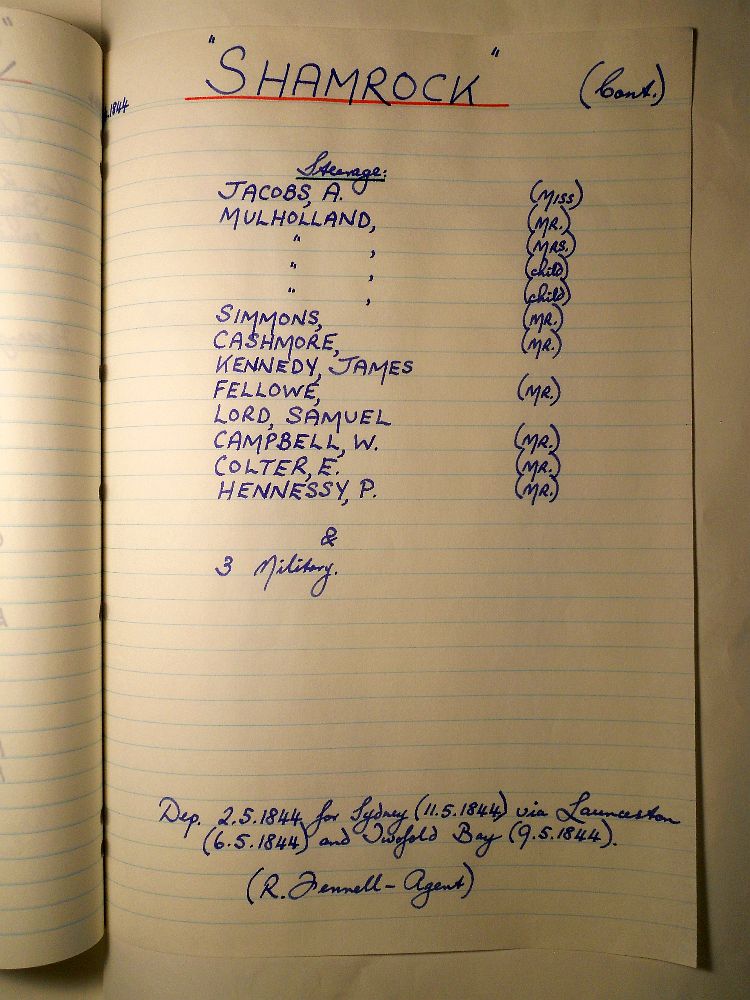 "SHAMROCK" (Cont.)
.1844
Steerage:
JACOBS, A. (MISS)
MULHOLLAND, (MR.)
" , (MRS.)
" , (child)
" , (child)
SIMMONS, (MR.)
CASHMORE, (MR.)
KENNEDY, JAMES
FELLOWE, (MR.)
LORD, SAMUEL
CAMPBELL, W. (MR.)
COLTER, E. (MR.)
HENNESSY, P. (MR.)
&
3 Military.
Dep. 2.5.1844 for Sydney (11.5.1844) via Launceston
(6.5.1844) and Twofold Bay (9.5.1844).
(R. Fennell - Agent)